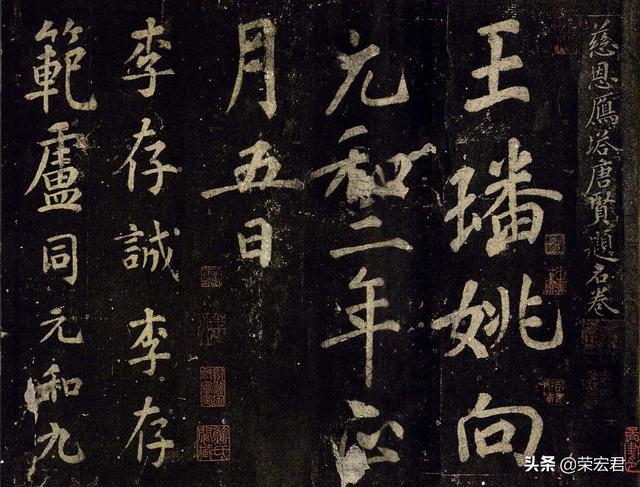 慈恩鴈塔唐賢題名卷
王璠姚向
元和二年正
月五日
李存誠李存
範盧同元和九
头条 @荣宏君